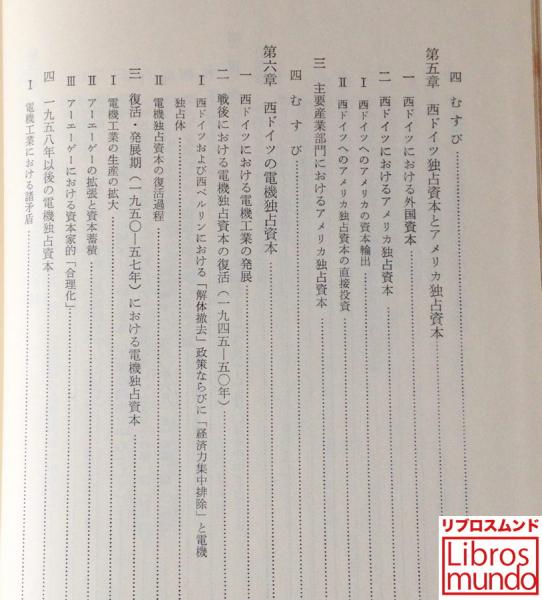 四 むすび
第五章 西ドイツ独占資本とアメリカ独占資本
一 西ドイツにおける外国資本
二 西ドイツにおけるアメリカ独占資本
Ⅰ 西ドイツへのアメリカの資本輸出
Ⅱ 西ドイツへのアメリカ独占資本の直接投資
三 主要産業部門におけるアメリカ独占資本
四 むすび
第六章 西ドイツの電機独占資本
一 西ドイツにおける電機工業の発展
二 戦後における電機独占資本の復活（一九四五—五〇年）
Ⅰ 西ドイツおよび西ベルリンにおける「解体撤去」政策ならびに「経済力集中排除」と電機
独占体
Ⅱ 電機独占資本の復活過程
三 復活・発展期（一九五〇—五七年）における電機独占資本
Ⅰ 電機工業の生産の拡大
Ⅱ アーエーゲーの拡張と資本蓄積
Ⅲ アーエーゲーにおける資本家的「合理化」
四 一九五八年以後の電機独占資本
Ⅰ 電機工業における諸矛盾
リブロスムンド
Libros
mundo